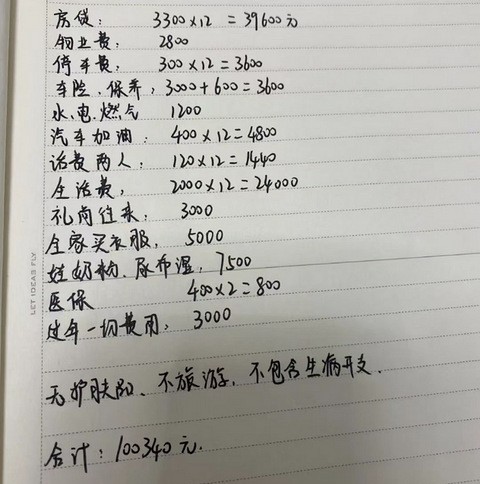 房贷: 3300×12 = 39600元
物业费: 2800
停车费: 300×12 = 3600
车险、保养: 3000+600 = 3600
水、电、燃气 1200
汽车加油: 400×12 = 4800
话费两人: 120×12 = 1440
生活费, 2000×12 = 24000
礼尚往来: 3000
全家买衣服, 5000
娃奶粉、尿布湿, 7500
医保 400×2 = 800
过年一切费用: 3000
无护肤品、不旅游、不包含生病开支.
合计: 100340元.
LET IDEAS FLY